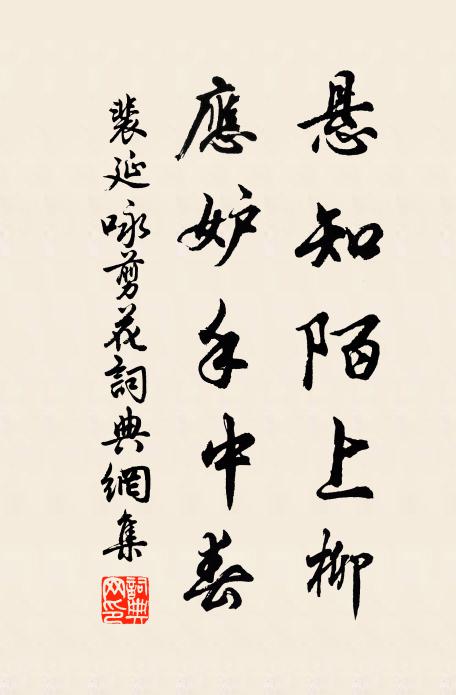 悬知陌上柳
應妒手中春
裴延咏剪花詞典網集
詞典網印